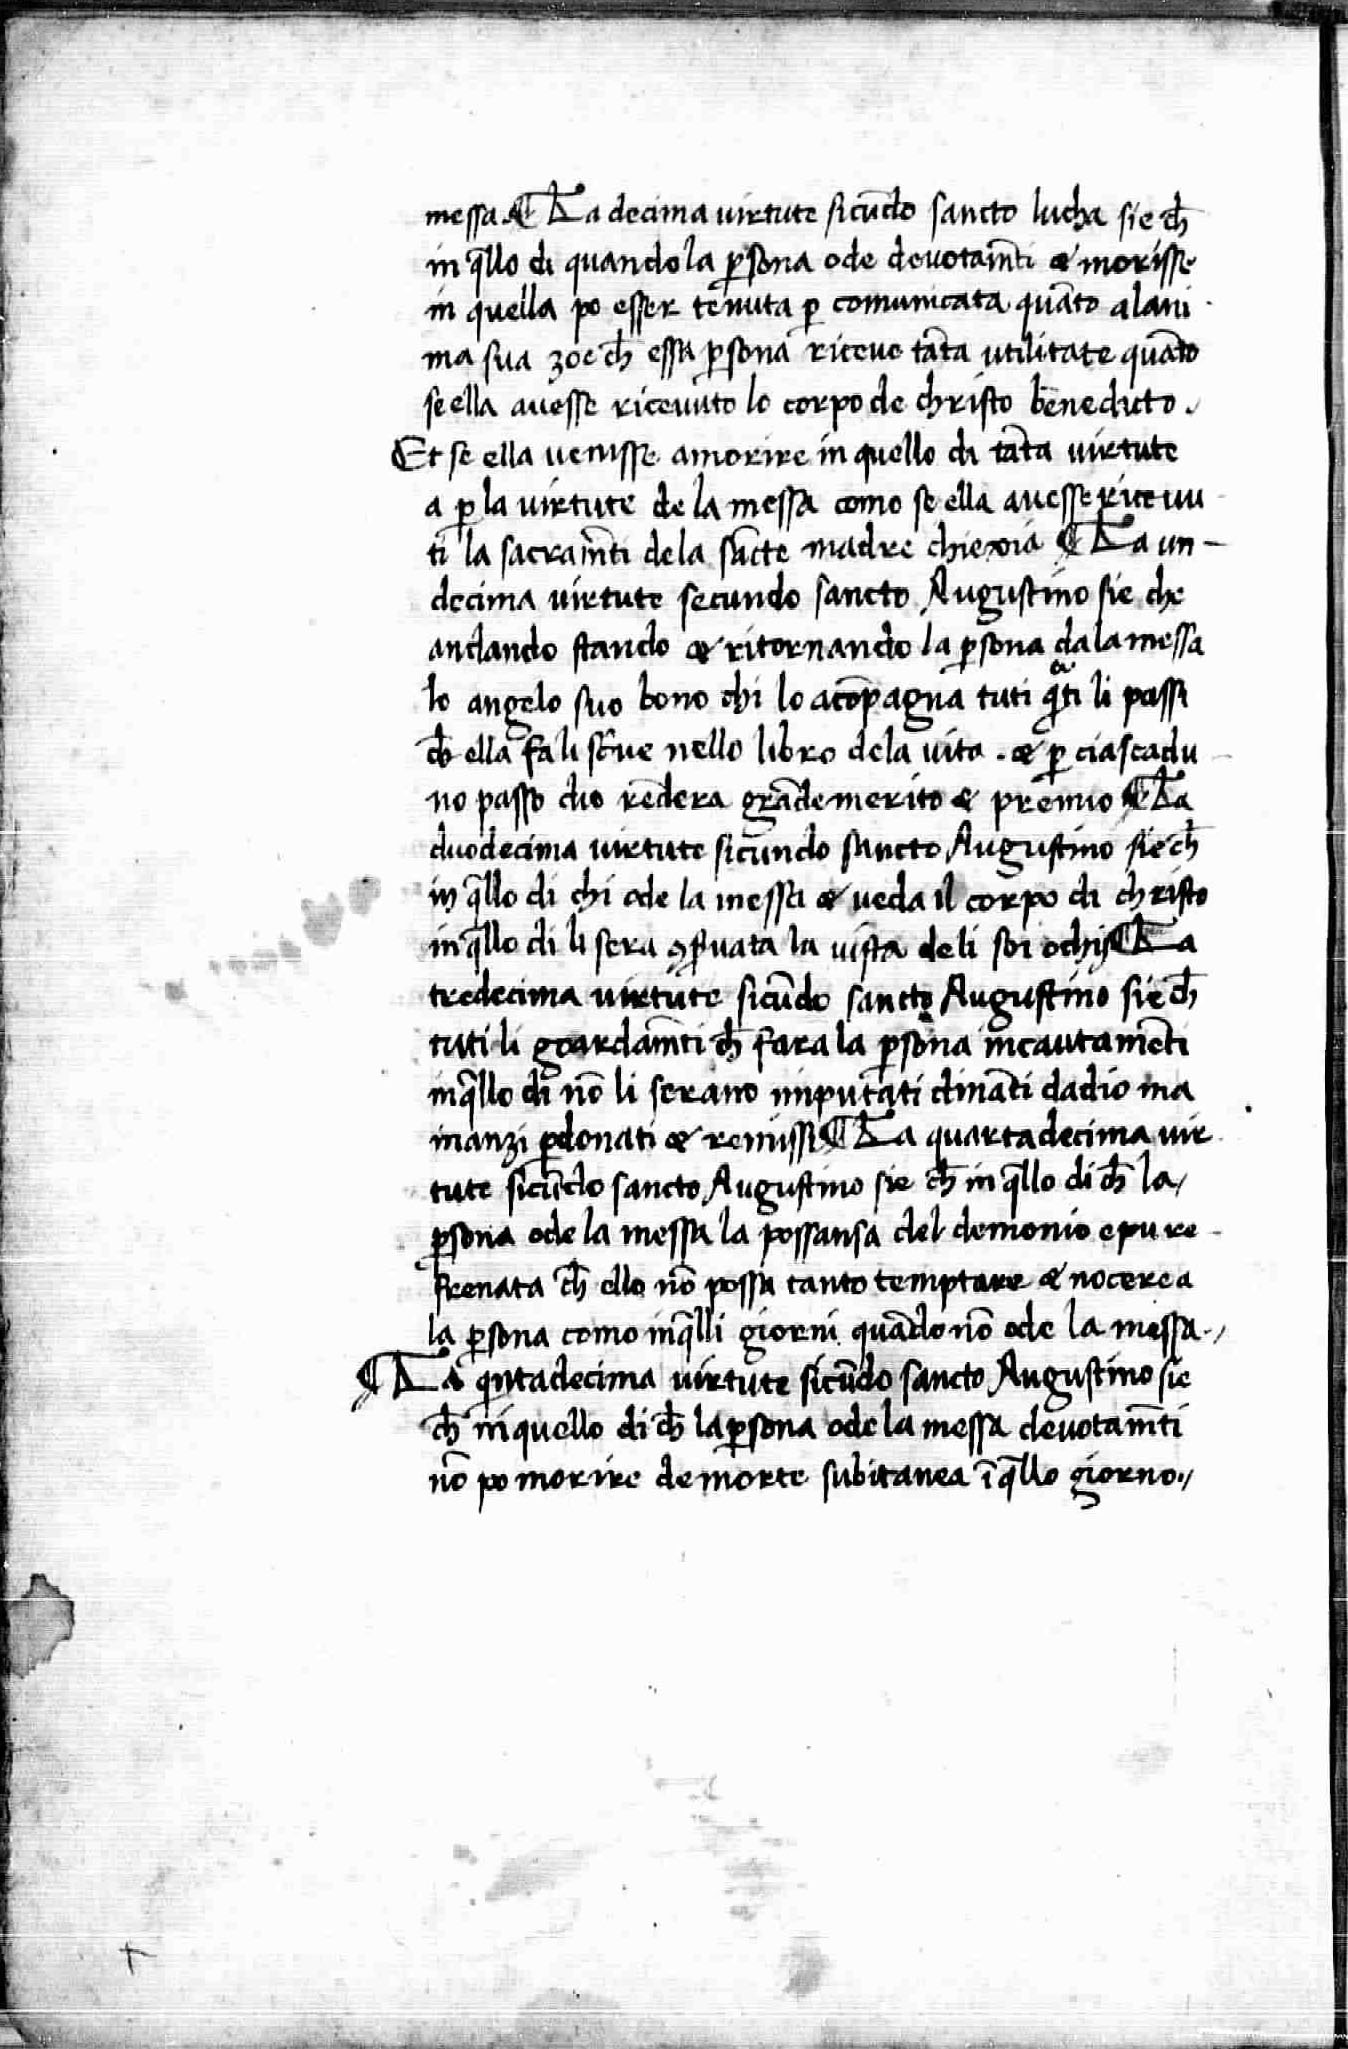 messa. ¶ La decima uirtute sicūdo sancto lucha sie ch̄
in q̄llo di quando la ꝑsona ode deuotam̄ti & morisse
in quella po esser tenuta ꝑ comunicata quāto a lani
ma sua zoe ch̄ essa ꝑsona riceue tāta utilitate quāto
se ella auesse riceuuto lo corpo de christo benedicto.
Et se ella uenisse a morire in quello di tāta uirtute
a ꝑ la uirtute de la messa como se ella auesse riceuu
ti la sacram̄ti de la sācte madre chiexia ¶ La un-
decima uirtute secundo sancto Augustino sie che
andando stando & ritornando la ꝑsona da la messa
lo angelo suo bono chi lo acōpagna tuti qᵃti li passi
ch̄ ella fa li sc̄ue nello libro de la uita. & ꝑ ciascadu
no passo dio rēdera grāde merito & premio ¶ La
duodecima uirtute sicundo sancto Augustino sie ch̄
in q̄llo di chi ode la messa & ueda il corpo di christo
in q̄llo di li sera ꝯẜuata la uista de li soi ochij ¶ La
tredecima uirtute sicūdo sancto Augustino sie ch̄
tuti li goardam̄ti ch̄ fara la ꝑsona incautamēti
in q̄llo di nō li serano imputati dināti da dio ma
inanzi ꝑdonati & remissi ¶ La quartadecima uir
tute sicūdo sancto Augustino sie ch̄ in q̄llo di ch̄ la
ꝑsona ode la messa la possansa del demonio e pu re-
frenata ch̄ ello nō possa tanto temptare & nocere a
la ꝑsona como in q̄lli giorni quādo nō ode la messa.
¶ La q̇ntadecima uirtute sicūdo sancto Augustino sie
ch̄ in quello di ch̄ la ꝑsona ode la messa deuotam̄ti
nō po morire de morte subitanea ī q̄llo giorno.